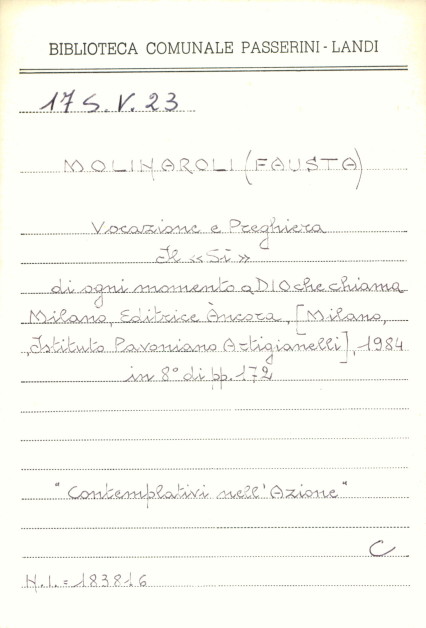 BIBLIOTECA COMUNALE PASSERINI-LANDI
17 S. V. 23
MOLINAROLI (FAUSTA)
Vocazione e Preghiera
Il «Sì»
di ogni momento a DIO che chiama
Milano, Editrice Àncora, [Milano,
Istituto Pavoniano Artigianelli], 1984
in 8° di pp. 172
"Contemplativi nell'Azione"
C
N.I.=183816